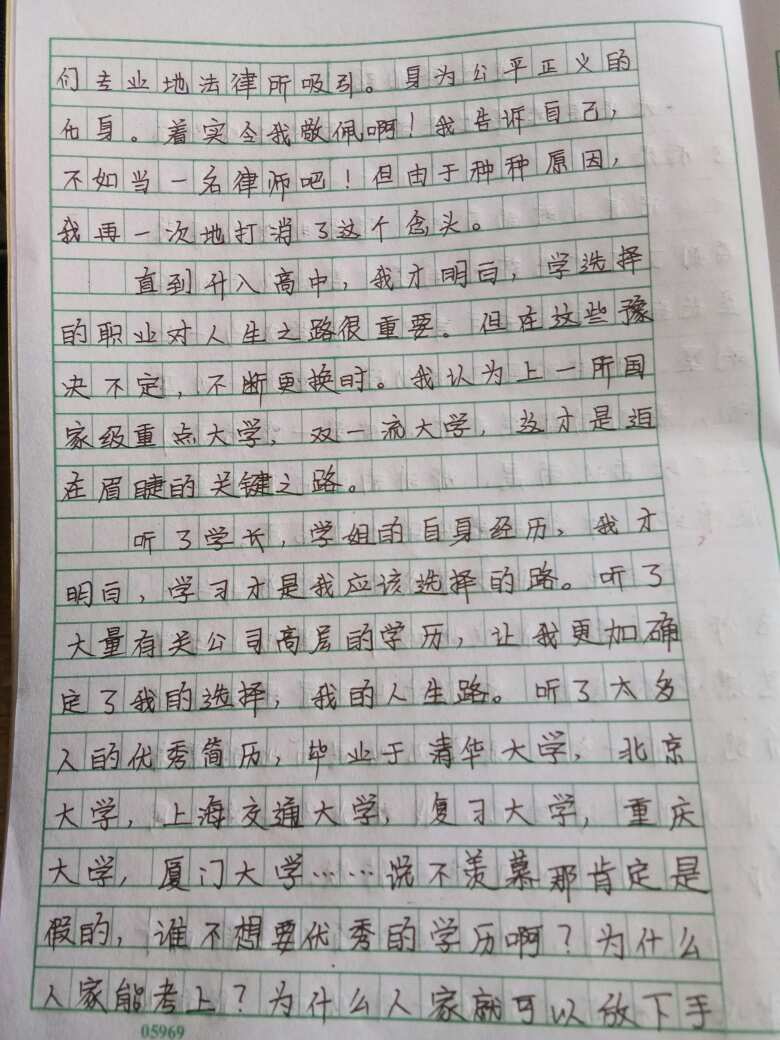 们专业地法律所吸引。身为公平正义的
化身。着实令我敬佩啊！我告诉自己，
不如当一名律师吧！但由于种种原因，
我再一次地打消了这个念头。
直到升入高中，我才明白，学选择
的职业对人生之路很重要。但在这些豫
决不定，不断更换时。我认为上一所国
家级重点大学，双一流大学，这才是迫
在眉睫的关键之路。
听了学长，学姐的自身经历，我才
明白，学习才是我应该选择的路。听了
大量有关公司高层的学历，让我更加确
定了我的选择，我的人生路。听了太多
人的优秀简历，毕业于清华大学，北京
大学，上海交通大学，复习大学，重庆
大学，厦门大学……说不羡慕那肯定是
假的，谁不想要优秀的学历啊？为什么
人家能考上？为什么人家就可以放下手
05969